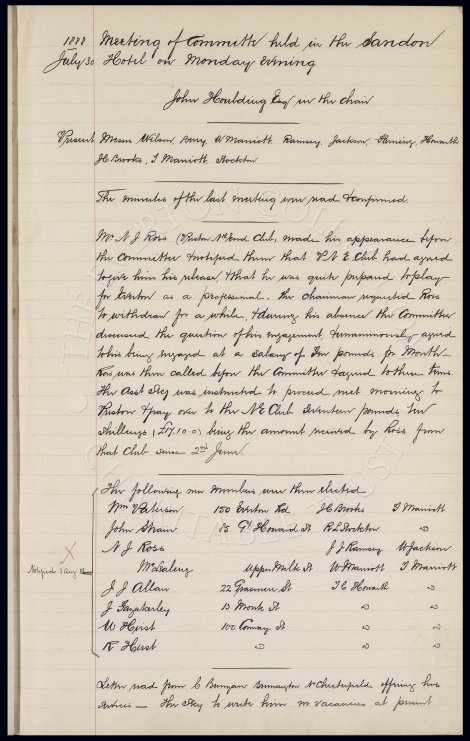 1888 Meeting of Committee held in the Sandon
July 30 Hotel on Monday Evening
John Houlding Esq in the chair
Present Messrs Wilson, Berry, W Marriott, Ramsey, Jackson, Fleming, Howarth
J C Brooks, T Marriott, Stockton
The minutes of the last meeting were read & confirmed.
Mr N J Ross (Preston Nth End Club) made his appearance before
the Committee & notified them that P N E Club had agreed
to give him his release, & that he was quite prepared to play
for Everton as a professional. The chairman requested Ross
to withdraw for a while, & during his absence the Committee
discussed the question of his engagement, & unanimously agreed
to his being engaged at a salary of Ten pounds per Month
Ross was then called before the Committee & agreed to these terms.
The Asst Secy was instructed to proceed next morning to
Preston & pay over to the N E Club Seventeen pounds, ten
shillings (£17.10.0) being the amount received by Ross from
that Club since 2nd June
The following new members were then elected
Wm Paterson 150 Everton Rd J C Brooks T Marriott
John Shaw 85 Gt Howard St R L Stockton "
N J Ross J J Ramsey W Jackson
X
Notified 3 Aug Upper Milk St W Marriott T Marriott
J J Allan 22 Grasmere St T C Howarth "
J Gazakerley 13 Monk St " "
W Hirst 100 Conway St " "
R Hirst " " "
Letter read from C Bunyan Brimington Nr Chesterfield offering his
services — The Secy to write him no vacancies at present
THE EVERTON COLLECTION CHARITABLE TRUST